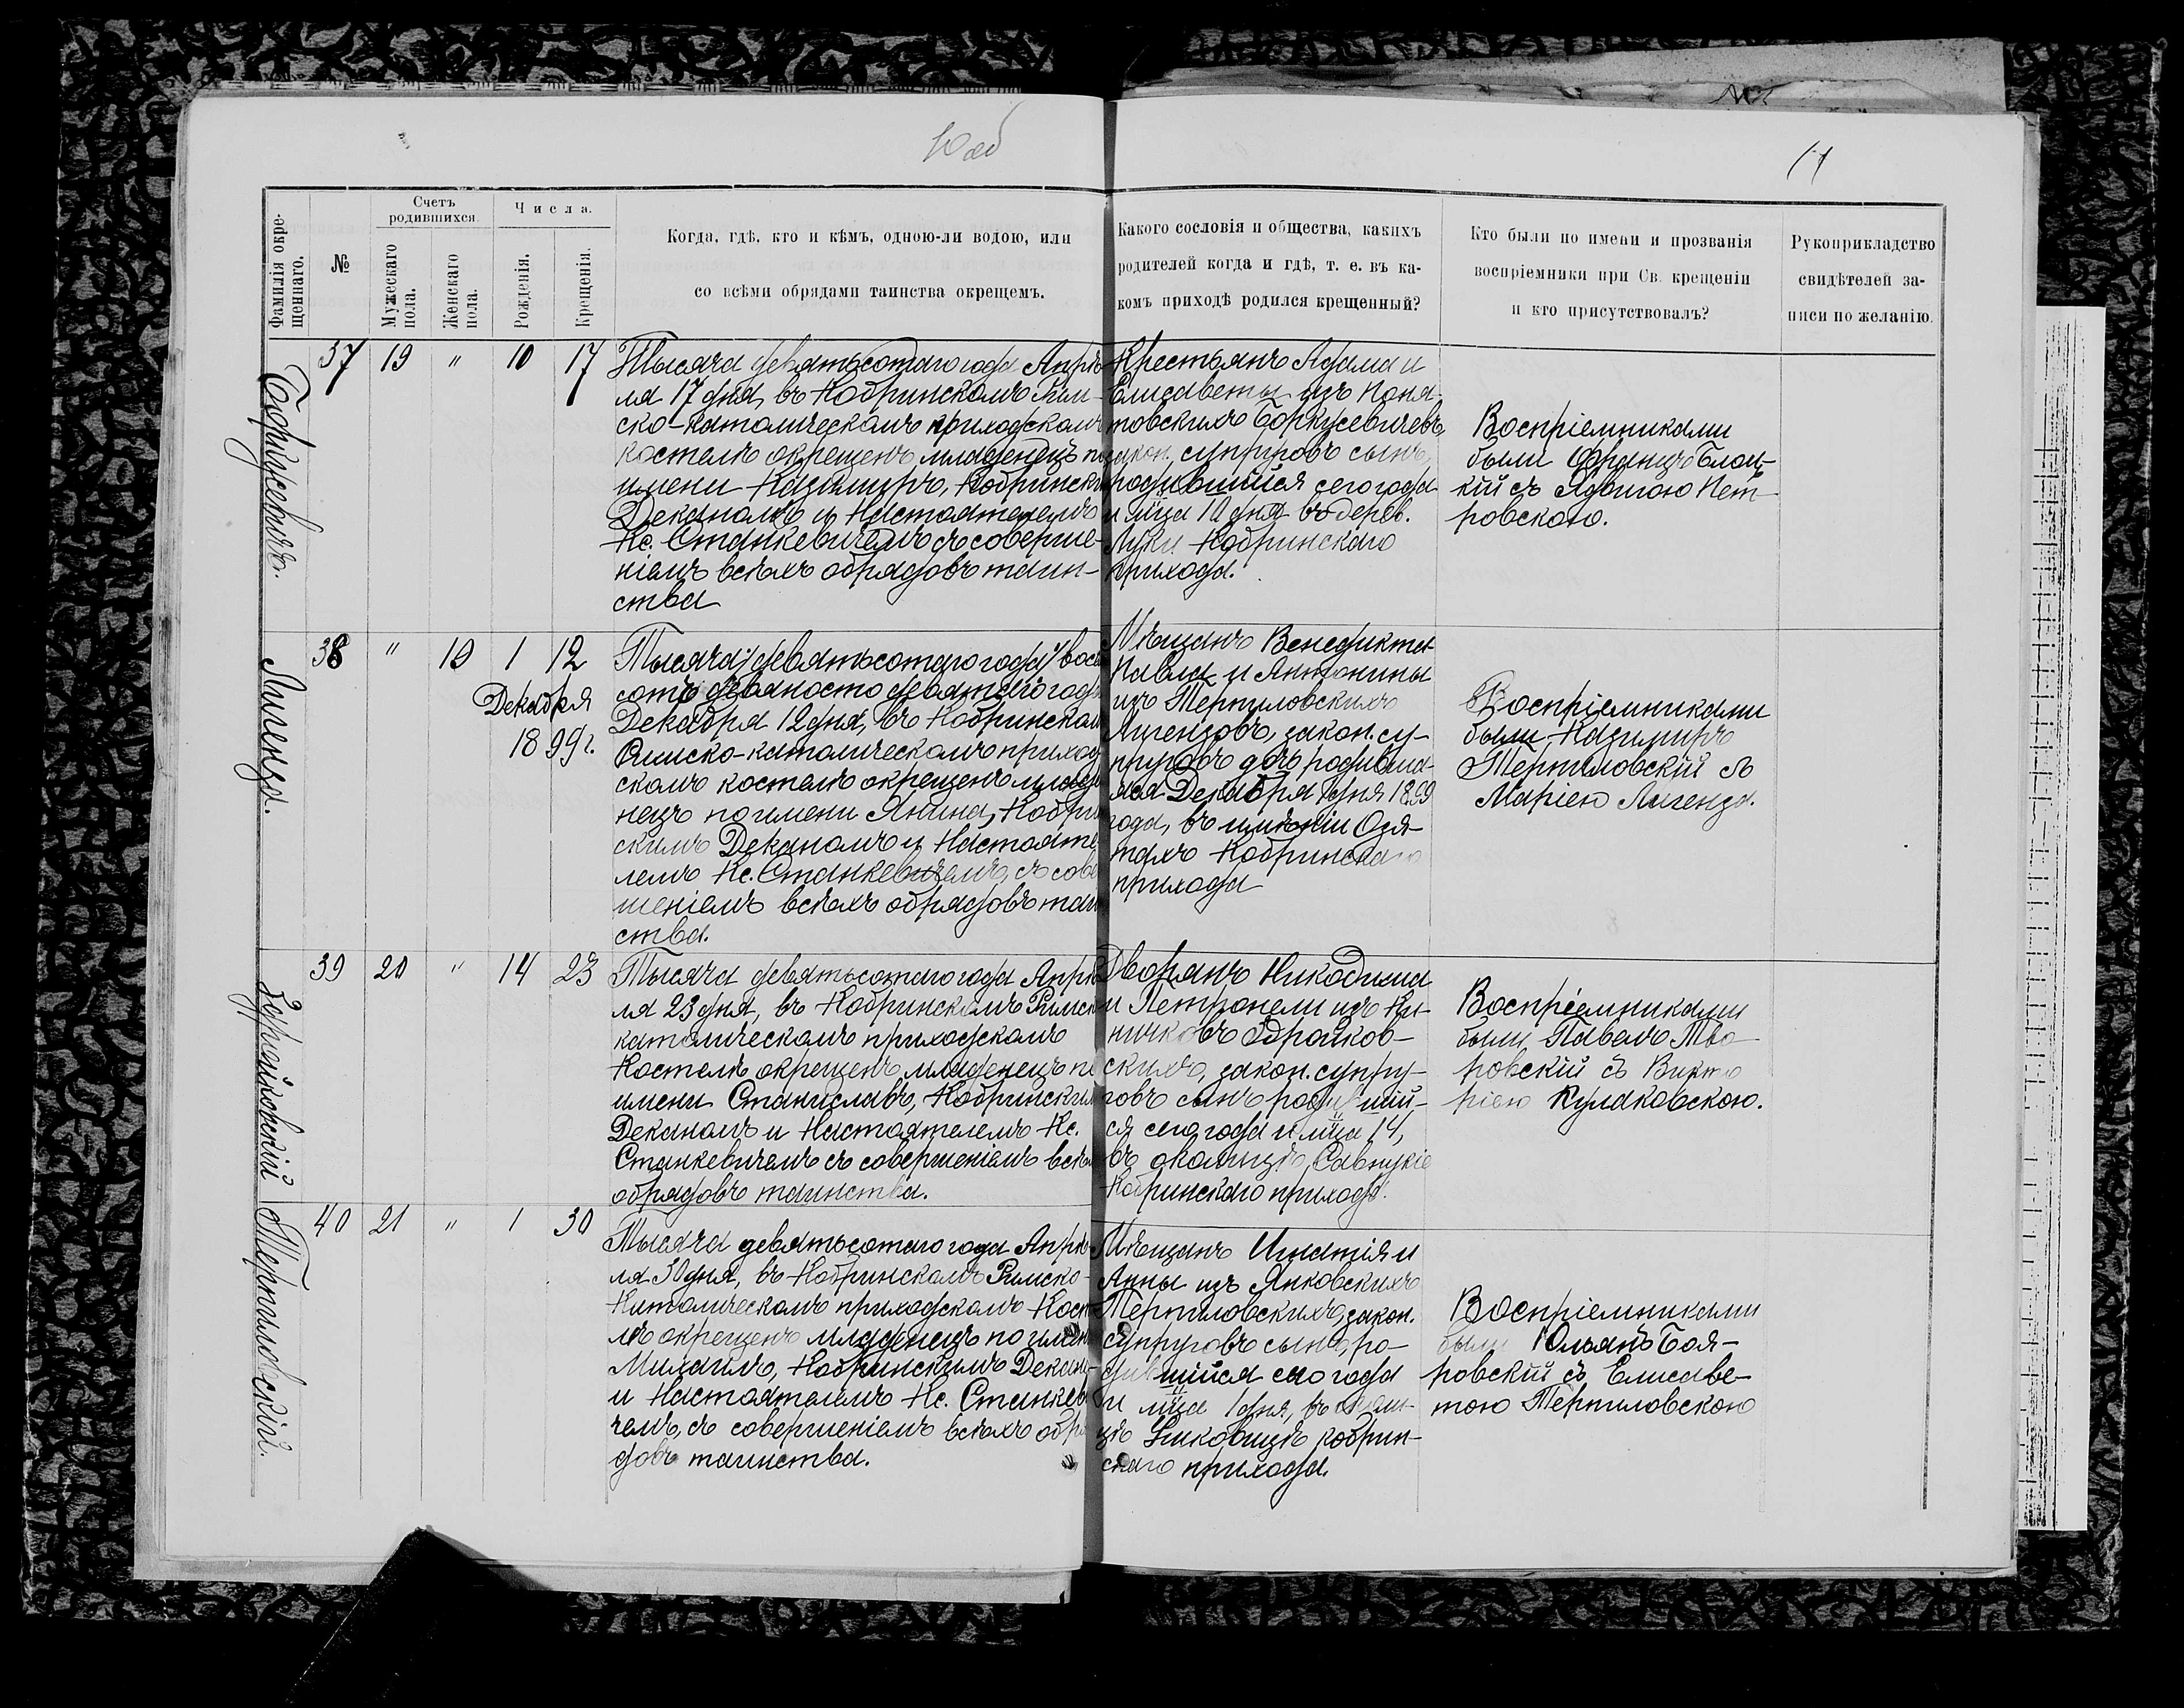 10 об
11
Фамилія окре-
щеннаго.
№
Счетъ
родившихся.
Мужескаго
пола.
Женскаго
пола.
Числа.
Рожденія.
Крещенія.
Когда, гдѣ, кто и кѣмъ, одною-ли водою, или
со всѣми обрядами таинства окрещемъ.
Какого сословія и общества, какихъ
родителей когда и гдѣ, т. е. въ ка-
комъ приходѣ родился крещенный?
Кто были по имени и прозванія
воспріемники при Св. крещеніи
и кто присутствовалъ?
Рукоприкладство
свидѣтелей за-
писи по желанію.
Боркусевичъ.
37 19 " 10 17
Тысяча девятьсотаго года Апрѣ
ля 17 дня, въ Кобринскомъ Рим-
ско-католическомъ приходскомъ
костелѣ окрещенъ младенецъ по
имени Казимиръ, Кобрински
Деканомъ и Настоятелемъ
Кс. Станкевичемъ съ соверше-
ніемъ всѣхъ обрядовъ таин-
ства
Крестьянъ Адама и
Елисаветы изъ Поня-
товскихъ Боркусевичевъ,
закон. супруговъ сынъ,
родившійся сего года
и мца 10 дня въ дерев.
Луки Кобринскаго
прихода.
Воспріемниками
были Францъ
кій съ Ядвигою Пет-
ровскою.
Лигенза.
38 " 19 1 12
Декабря
1899 г.
Тысяча (девятьсотаго года) восем
сотъ девяносто девятаго года
Декабря 12 дня, въ Кобринском
Римско-католическомъ приход
скомъ костелѣ окрещенъ младе
нецъ по имени Янина, Кобрин
скимъ Деканомъ и Настояте
лемъ Кс. Станкевичемъ, съ совер
шеніемъ всѣхъ обрядовъ таин
ства.
Мѣщанъ Венедикта
Павла и Антонины
изъ Терпиловскихъ
Лигензовъ, закон. су-
пруговъ дочь родивша-
яся Декабря 1 дня 1899
года, въ имѣніи Озя-
тахъ Кобринскаго
прихода
Воспріемниками
были Казимиръ
Терпиловскій съ
Маріею Лигенза.
Здройковскій
39 20 " 14 23
Тысяча девятьсотаго года Апрѣ
ля 23 дня, въ Кобринскомъ Римско
католическомъ приходскомъ
Костелѣ окрещенъ младенецъ по
имени Станиславъ, Кобринским
Деканомъ и Настоятелемъ Кс.
Станкевичемъ съ совершеніемъ всѣхъ
обрядовъ таинства.
Дворянъ Никодима
и Петронели изъ
Здройков-
скихъ, закон. супру-
говъ сынъ родившій-
ся сего года и мца 14,
въ околицѣ
Кобринскаго прихода.
Воспріемниками
были Павелъ Тво
ровскій съ Викто
ріею Кулаковскою.
Терпиловскій.
40 21 " 1 30
Тысяча девятьсотаго года Апрѣ
ля 30 дня, въ Кобринскомъ Римско-
Католическомъ приходскомъ Косте
лѣ окрещенъ младенецъ по имени
Михаилъ, Кобринскимъ Декано-
и Настоятелемъ Кс. Станкеви
чемъ, съ совершеніемъ всѣхъ обря
довъ таинства.
Мѣщанъ Игнатія и
Анны изъ Янковскихъ
Терпиловскихъ, закон.
супруговъ сынъ, ро-
дившійся сего года
и мца 1 дня, въ околи-
цѣ Кобрин-
скаго прихода.
Воспріемниками
были Юльянъ Боя-
ровскій съ Елисаве-
тою Терпиловскою